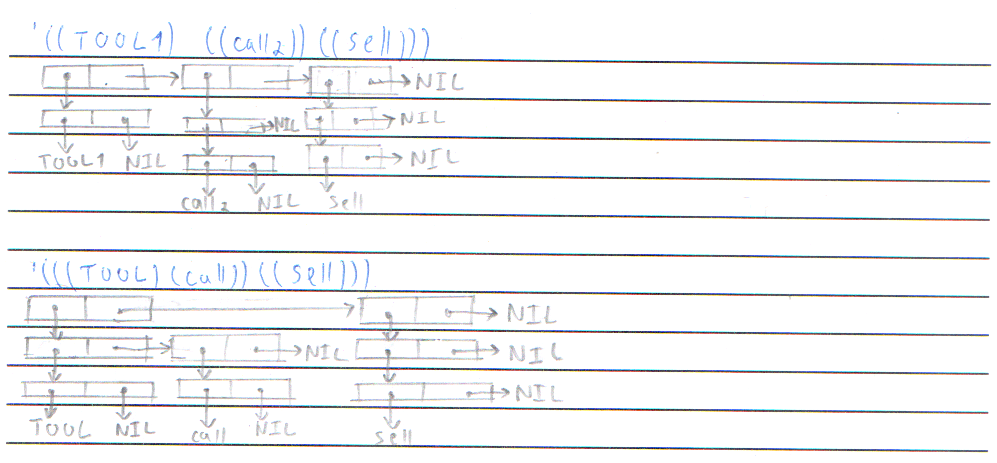 '((TOOL1) ((call2)) ((sell)))
NIL
NIL NIL
TOOL1 NIL NIL
call2 NIL sell
'(((TOOL)(call))((sell)))
NIL
NIL NIL
NIL
TOOL NIL call NIL sell